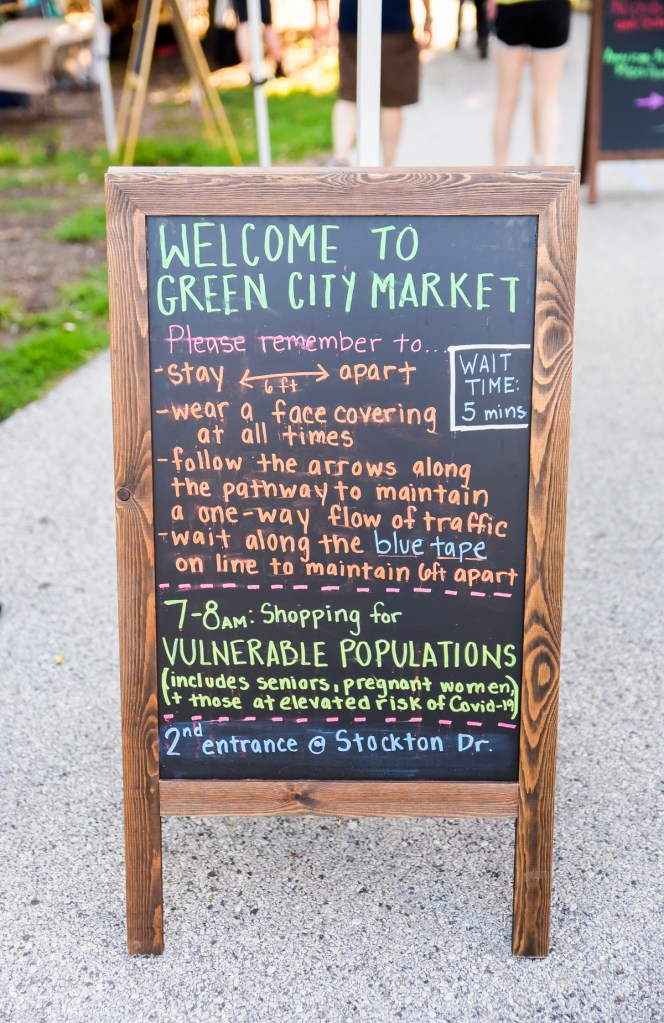 WELCOME TO
GREEN CITY MARKET
Please remember to...
-stay 6 ft apart
WAIT
TIME:
5 mins
-wear a face covering
at all times
-follow the arrows along
the pathway to maintain
a one-way flow of traffic
-wait along the blue tape
on line to maintain 6ft apart
7-8AM: Shopping for
VULNERABLE POPULATIONS
(includes seniors, pregnant women,
+ those at elevated risk of Covid-19)
2nd entrance @ Stockton Dr.